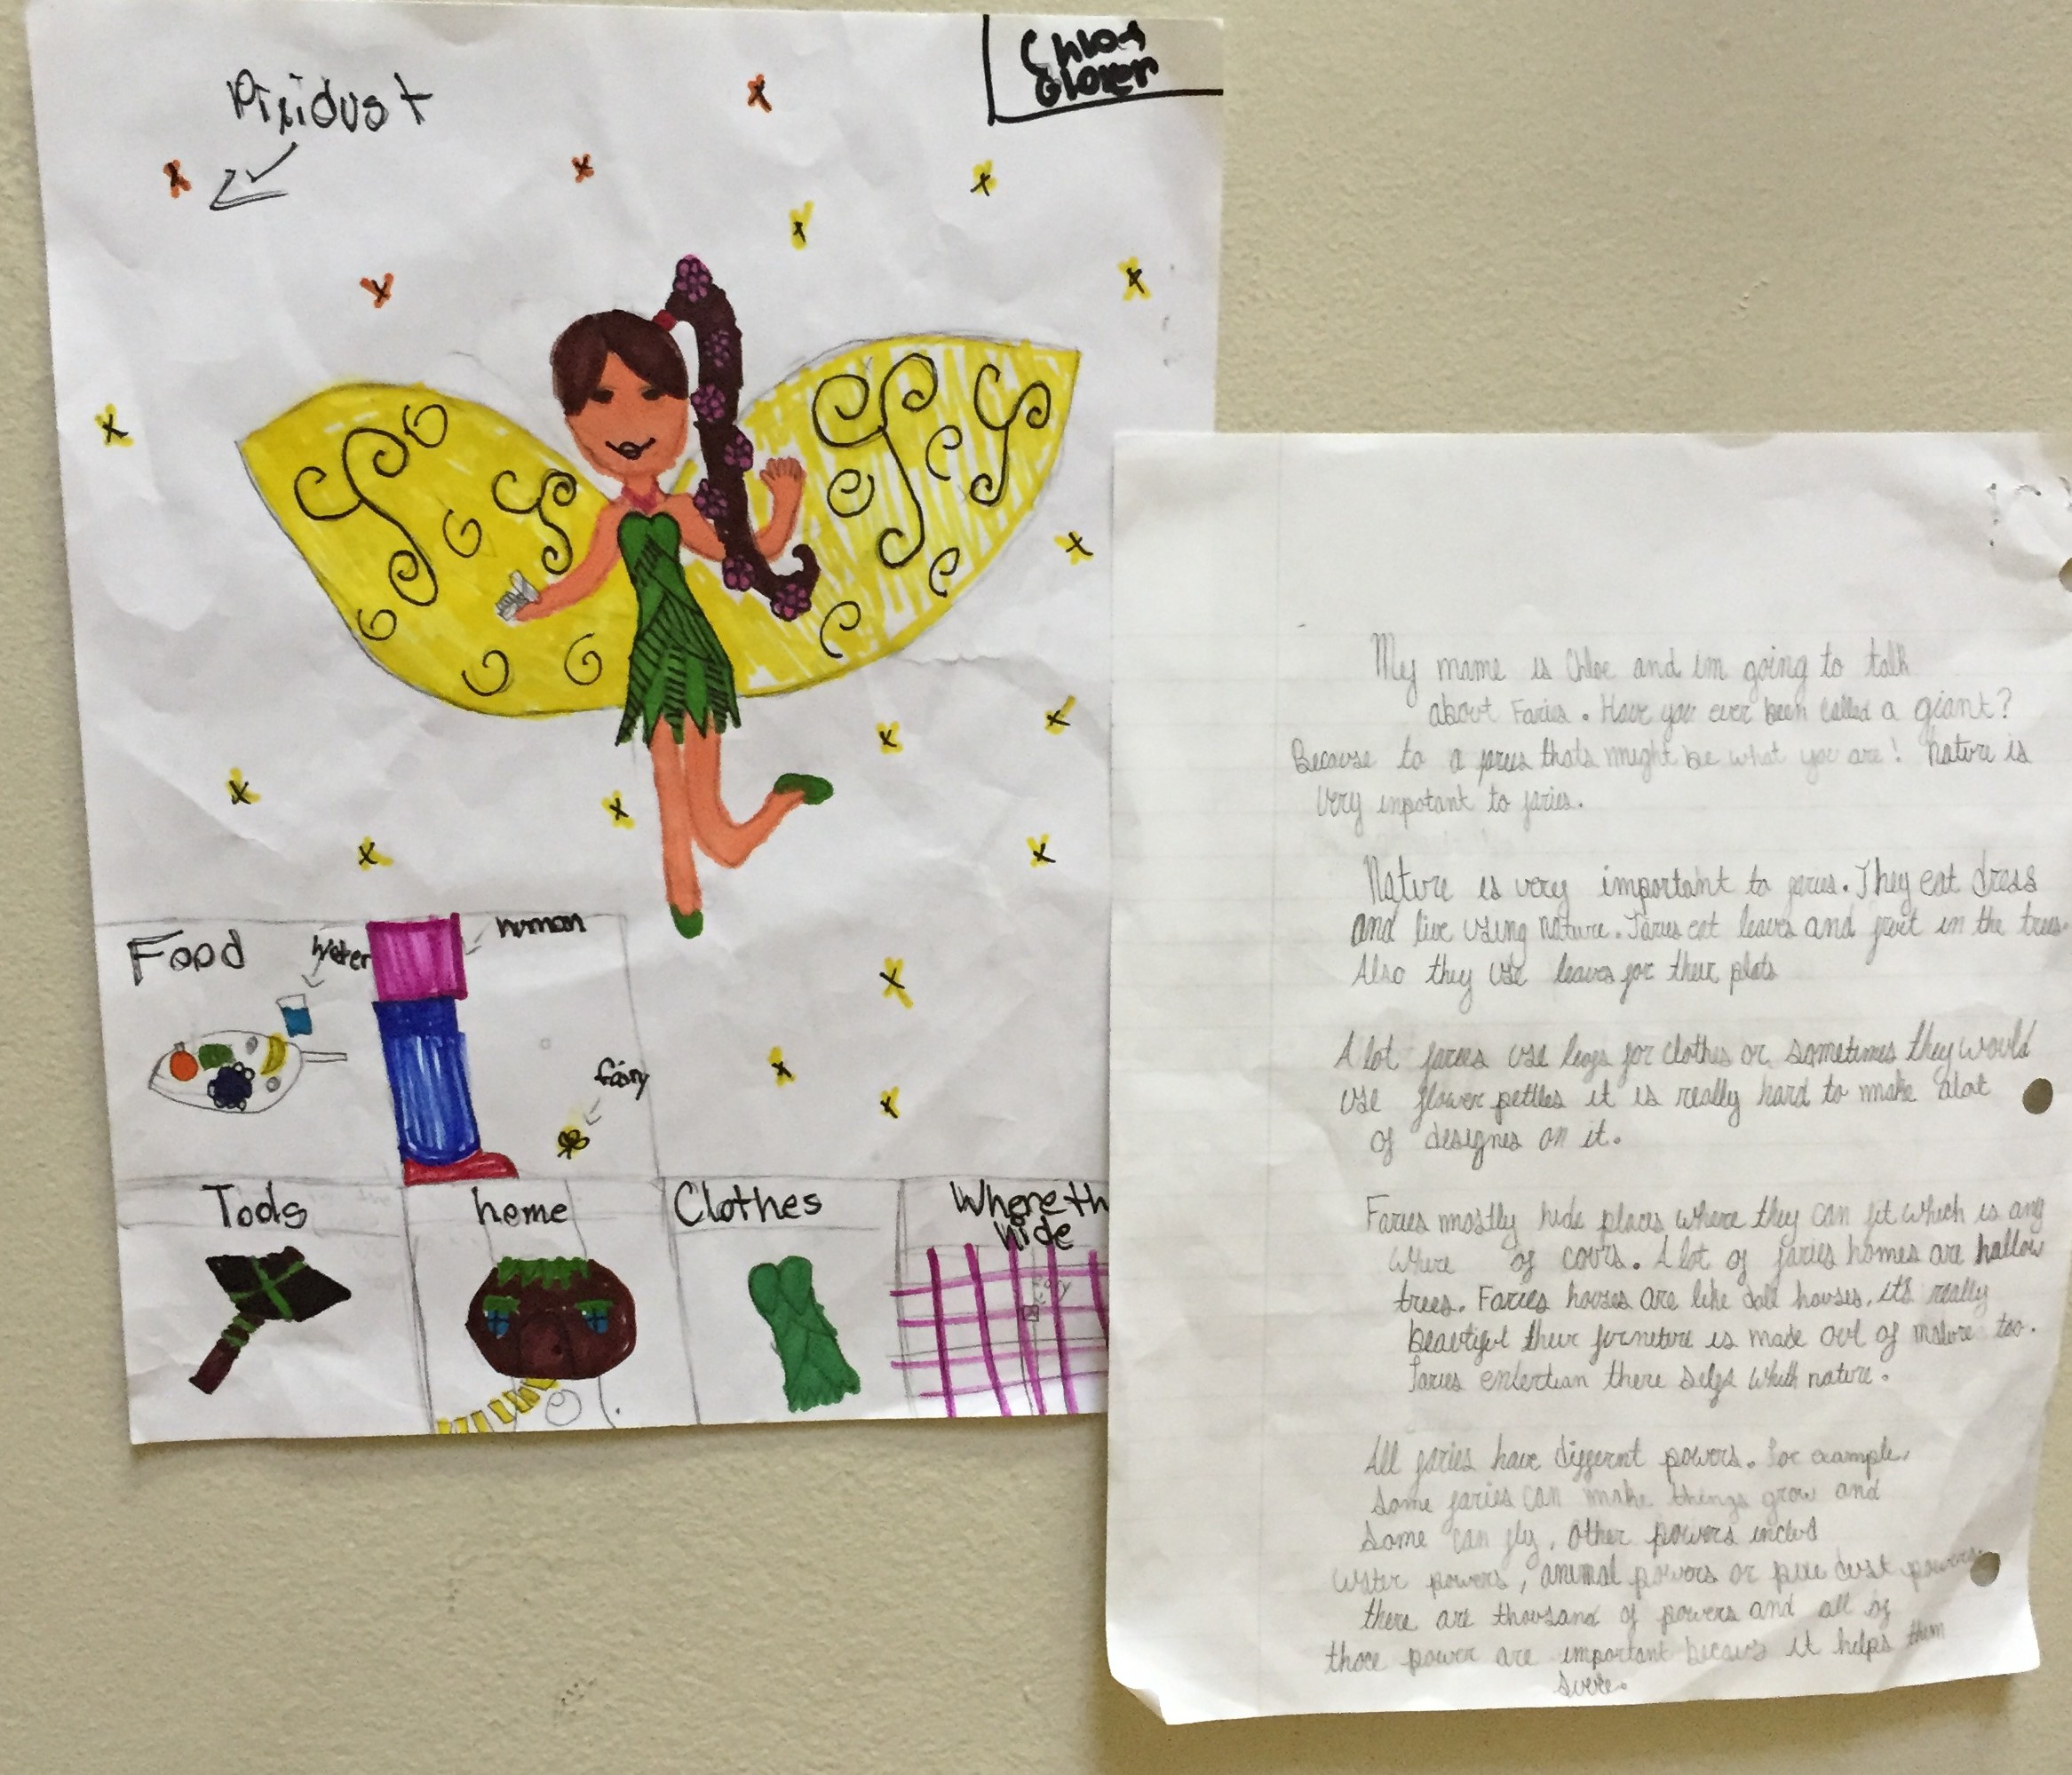 Pixidust
Chloe
Glover
Food
water
human
fairy
Tools
home
Clothes
Where th
hide
My mame is Chloe and im going to talk
about Faries. Have you ever been called a giant?
Because to a faries thats might be what you are! Nature is
Very inpotant to faries.
Nature is very important to faries. They eat dress
and live using nature. Faries eat leaves and fruit in the trees.
Also they use leaves for their plats
A lot faries use leafs for clothes or sometimes they would
use flower pettles it is really hard to make alot
of designes on it.
Faries mostly hide places where they can fit which is any
where of cours. A lot of faries homes are hallow
trees. Faries houses are like doll houses, it's really
beautiful their furneture is made out of nature too.
Faries entertian there selfs whith nature.
All faries have differnt powers. For example,
Some faries can make things grow and
Some can fly, other powers includ
Water powers, animal powers or pixe dust powers
there are thousand of powers and all of
those power are important becaus it helps them